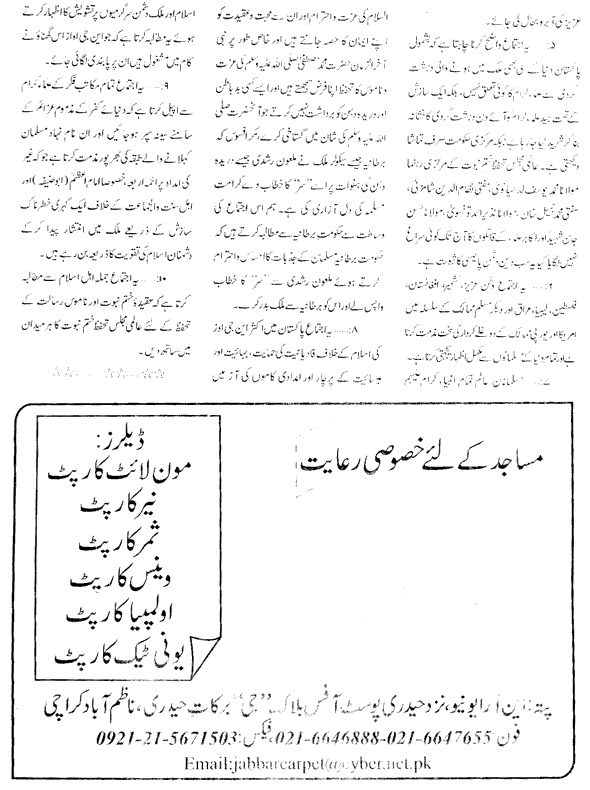 عزیز کی آبرو بحال کی جائے۔
۵:...... یہ اجتماع واضح کرنا چاہتا ہے کہ بشمول
پاکستان دنیا کے کسی بھی ملک میں ہونے والی دہشت
گردی سے علماء کرام کا کوئی تعلق نہیں، بلکہ ایک سازش
کے تحت جید علماء کرام کو آئے دن دہشت گردی کا نشانہ
بنا کر شہید کیا جا رہا ہے جبکہ مرکزی حکومت صرف تماشا
دیکھتی ہے۔ عالمی مجلس تحفظ ختم نبوت کے مرکزی رہنما
مولانا محمد یوسف لدھیانوی، مفتی نظام الدین شامزئی،
مفتی محمد جمیل خان، مولانا نذیر احمد تونسوی، مولانا حسن
جان شہید اور اکابر علماء کے قاتلوں کا آج تک کوئی سراغ
نہیں لگایا گیا یہ سب دین دشمن پالیسی کا ثبوت ہے۔
۶:...... یہ اجتماع وطن عزیز، کشمیر، افغانستان،
فلسطین، لیبیا، عراق اور دیگر مسلم ممالک کے سلسلہ میں
امریکا اور یورپی ممالک کے دوغلے کردار کی سخت مذمت کرتا
ہے اور تمام دنیا کے مسلمانوں سے مکمل اظہار یکجہتی کرتا ہے۔
۷:...... مسلمانان عالم تمام انبیاء کرام علیہم
السلام کی عزت و احترام اور ان سے محبت و عقیدت کو
اپنے ایمان کا حصہ جانتے ہیں اور خاص طور پر نبی
آخرالزمان حضرت محمد مصطفی صلی اللہ علیہ وسلم کی عزت
و ناموس کا تحفظ اپنا فرض سمجھتے ہیں اور ایسے کسی بد باطن
اور دریدہ دہن کو برداشت نہیں کرتے جو آنحضرت صلی
اللہ علیہ وسلم کی شان میں گستاخی کرے، مگر افسوس کہ
برطانیہ جیسے سیکولر ملک نے ملعون رشدی جیسے دریدہ
دہن کی ہفوات پر اسے "سر" کا خطاب دے کر امت
مسلمہ کی دل آزاری کی ہے۔ ہم اس اجتماع کی
وساطت سے حکومت برطانیہ سے مطالبہ کرتے ہیں کہ
حکومت برطانیہ مسلمان کے جذبات کا احساس و احترام
کرتے ہوئے ملعون رشدی سے "سر" کا خطاب
واپس لے اور اس کو برطانیہ سے ملک بدر کرے۔
۸:...... یہ اجتماع پاکستان میں اکثر این جی اوز
کی اسلام کے خلاف قادیانیت کی حمایت، بہائیت اور
عیسائیت کے پرچار اور امدادی کاموں کی آڑ میں
اسلام اور ملک دشمن سرگرمیوں پر تشویش کا اظہار کرتے
ہوئے یہ مطالبہ کرتا ہے کہ جو این جی اوز اس گھناؤنے
کام میں مشغول ہیں ان پر پابندی لگائی جائے۔
۹:...... یہ اجتماع تمام مکاتب فکر کے علماء کرام
سے اپیل کرتا ہے کہ دنیائے کفر کے مذموم عزائم کے
سامنے سینہ سپر ہو جائیں اور ان نام نہاد مسلمان
کہلانے والے طبقہ کی بھرپور مذمت کرتا ہے جو کہ غیر
کی امداد پر ائمہ اربعہ خصوصاً امام اعظم (ابوحنیفہ) اور
اہل سنت والجماعت کے خلاف ایک گہری خطرناک
سازش کے ذریعے ملک میں انتشار پیدا کر کے
دشمنان اسلام کی تقویت کا ذریعہ بن رہے ہیں۔
۱۰:...... یہ اجتماع جملہ اہل اسلام سے مطالبہ
کرتا ہے کہ عقیدۂ ختم نبوت اور ناموس رسالت کے
تحفظ کے لئے عالمی مجلس تحفظ ختم نبوت کا ہر میدان
میں ساتھ دیں۔
☆☆......☆☆......☆☆
مساجد کے لئے خصوصی رعایت
ڈیلرز:
مون لائٹ کارپٹ
نیر کارپٹ
ثمر کارپٹ
وینس کارپٹ
اولمپیا کارپٹ
یونی ٹیک کارپٹ
پتہ: این آر ایونیو، نزد حیدری پوسٹ آفس بلاک "جی" برکات حیدری، ناظم آباد کراچی
فون 021-6646888-021-6647655، فیکس: 0921-21-5671503
Email:jabbarcarpet@cyber.net.pk